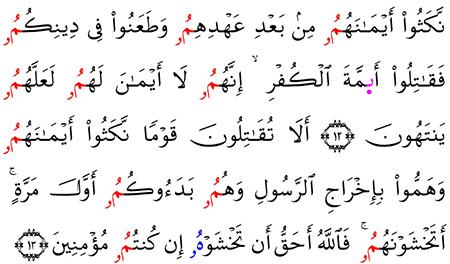 نَّكَثُوا۟ أَيْمَـٰنَهُمُۥ مِنۢ بَعْدِ عَهْدِهِمُۥ وَطَعَنُوا۟ فِى دِينِكُمُۥ
فَقَـٰتِلُوا۟ أَىِمَّةَ ٱلْكُفْرِ ۙ إِنَّهُمُۥ لَا أَيْمَـٰنَ لَهُمُۥ لَعَلَّهُمُۥ
يَنتَهُونَ ١٢ أَلَا تُقَـٰتِلُونَ قَوْمًا نَكَثُوا۟ أَيْمَـٰنَهُمُۥ
وَهَمُّوا۟ بِإِخْرَاجِ ٱلرَّسُولِ وَهُمُۥ بَدَءُوكُمُۥ أَوَّلَ مَرَّةٍ ۚ
أَتَخْشَوْنَهُمُۥ ۚ فَٱللَّهُ أَحَقُّ أَن تَخْشَوْهُۥ إِن كُنتُمُۥ مُؤْمِنِينَ ١٣